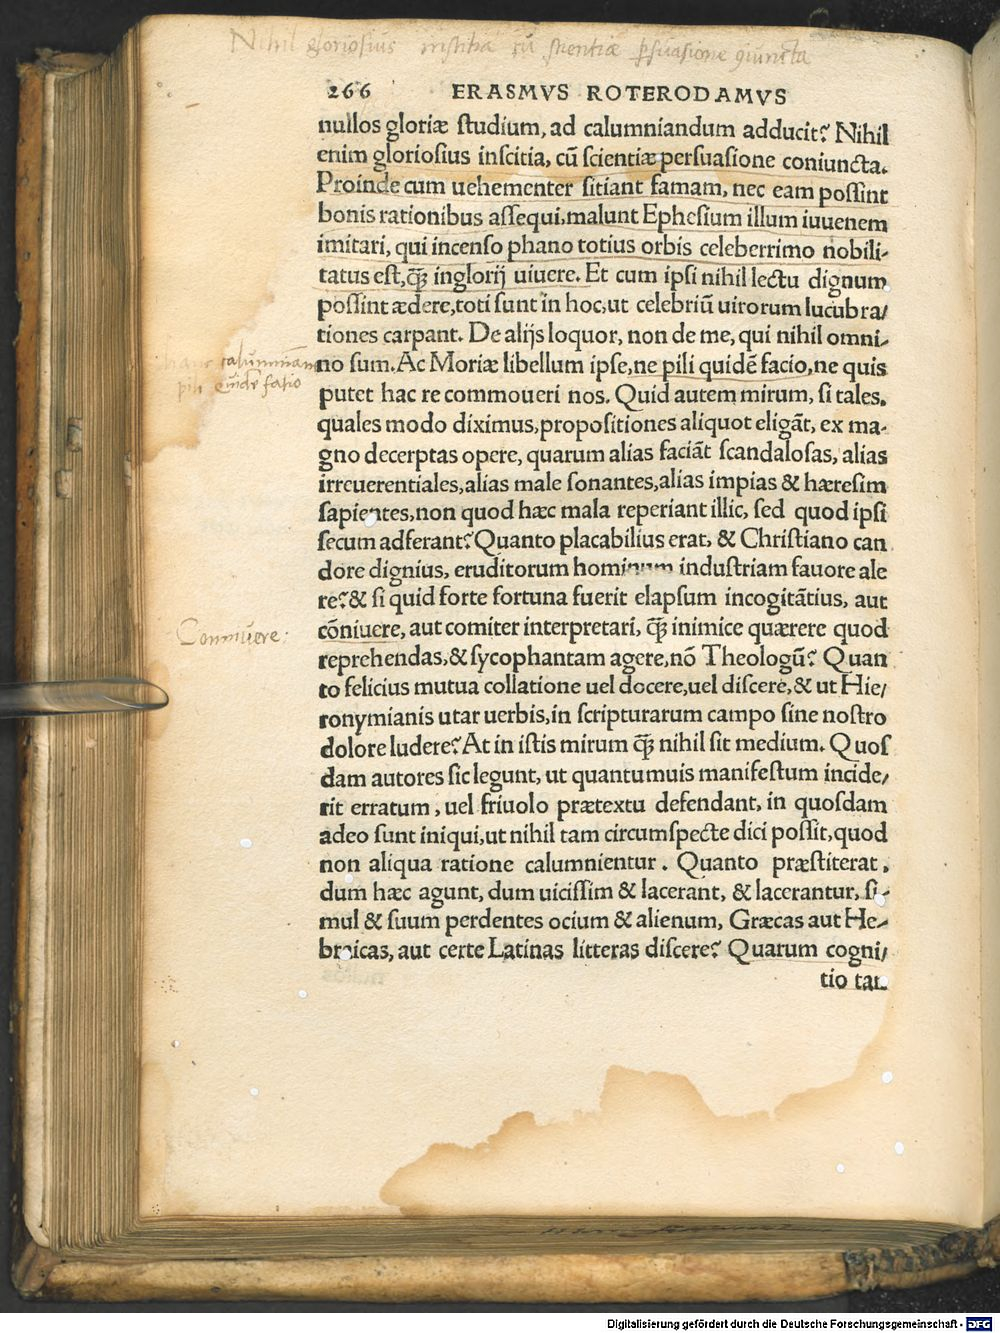 Nihil gloriosius inscitia cū scientiæ psuasione giuncta
266 ERASMVS ROTERODAMVS
nullos gloriæ studium, ad calumniandum adducit? Nihil
enim gloriosius inscitia, cū scientiæ persuasione coniuncta.
Proinde cum uehementer sitiant famam, nec eam possint
bonis rationibus assequi, malunt Ephesium illum iuuenem
imitari, qui incenso phano totius orbis celeberrimo nobili-
tatus est, q̃ inglorij uiuere. Et cum ipsi nihil lectu dignum
possint ædere, toti sunt in hoc, ut celebriū uirorum lucubra/
tiones carpant. De alijs loquor, non de me, qui nihil omni-
no sum. Ac Moriæ libellum ipse, ne pili quidē facio, ne quis
calumniam
pili quidē facio
putet hac re commoueri nos. Quid autem mirum, si tales.
quales modo diximus, propositiones aliquot eligāt, ex ma-
gno decerptas opere, quarum alias faciāt scandalosas, alias
irreuerentiales, alias male sonantes, alias impias & hæresim
sapientes, non quod hæc mala reperiant illic, sed quod ipsi
secum adferant? Quanto placabilius erat, & Christiano can
dore dignius, eruditorum hominum industriam fauore ale
re? & si quid forte fortuna fuerit elapsum incogitātius, aut
Conniuere:
cōniuere, aut comiter interpretari, q̃ inimice quærere quod
reprehendas, & sycophantam agere, nō Theologū? Quan
to felicius mutua collatione uel docere, uel discere, & ut Hie/
ronymianis utar uerbis, in scripturarum campo sine nostro
dolore ludere? At in istis mirum q̃ nihil sit medium. Quos
dam autores sic legunt, ut quantumuis manifestum incide/
rit erratum, uel friuolo prætextu defendant, in quosdam
adeo sunt iniqui, ut nihil tam circumspecte dici possit, quod
non aliqua ratione calumnientur. Quanto præstiterat,
dum hæc agunt, dum uicissim & lacerant, & lacerantur, si-
mul & suum perdentes ocium & alienum, Græcas aut He-
braicas, aut certe Latinas litteras discere? Quarum cogni/
tio tan
Digitalisierung gefördert durch die Deutsche Forschungsgemeinschaft - DFG